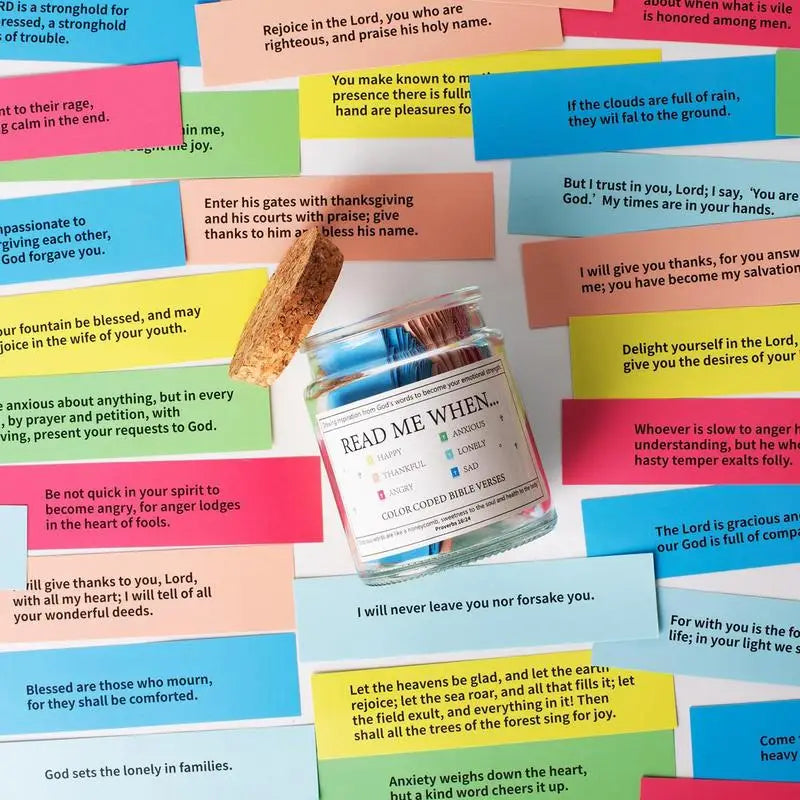 RD is a stronghold for
ressed, a stronghold
s of trouble.
Rejoice in the Lord, you who are
righteous, and praise his holy name.
about when what is vile
is honored among men.
You make known to m
presence there is fulln
hand are pleasures fo
If the clouds are full of rain,
they wil fal to the ground.
nt to their rage,
g calm in the end.
in me,
me joy.
But I trust in you, Lord; I say, ‘You are
God.’ My times are in your hands.
Enter his gates with thanksgiving
and his courts with praise; give
thanks to him and bless his name.
mpassionate to
rgiving each other,
God forgave you.
I will give you thanks, for you answ
me; you have become my salvation
our fountain be blessed, and may
joice in the wife of your youth.
Delight yourself in the Lord,
give you the desires of your
e anxious about anything, but in every
, by prayer and petition, with
ving, present your requests to God.
Whoever is slow to anger h
understanding, but he who
hasty temper exalts folly.
Drawing inspiration from God's words to become your emotional strength
READ ME WHEN...
HAPPY
THANKFUL
ANGRY
ANXIOUS
LONELY
SAD
COLOR CODED BIBLE VERSES
Gracious words are like a honeycomb, sweetness to the soul and health to the body
Proverbs 16:24
Be not quick in your spirit to
become angry, for anger lodges
in the heart of fools.
The Lord is gracious and
our God is full of compa
will give thanks to you, Lord,
with all my heart; I will tell of all
your wonderful deeds.
I will never leave you nor forsake you.
For with you is the fo
life; in your light we s
Blessed are those who mourn,
for they shall be comforted.
Let the heavens be glad, and let the earth
rejoice; let the sea roar, and all that fills it; let
the field exult, and everything in it! Then
shall all the trees of the forest sing for joy.
Come
heavy
God sets the lonely in families.
Anxiety weighs down the heart,
but a kind word cheers it up.